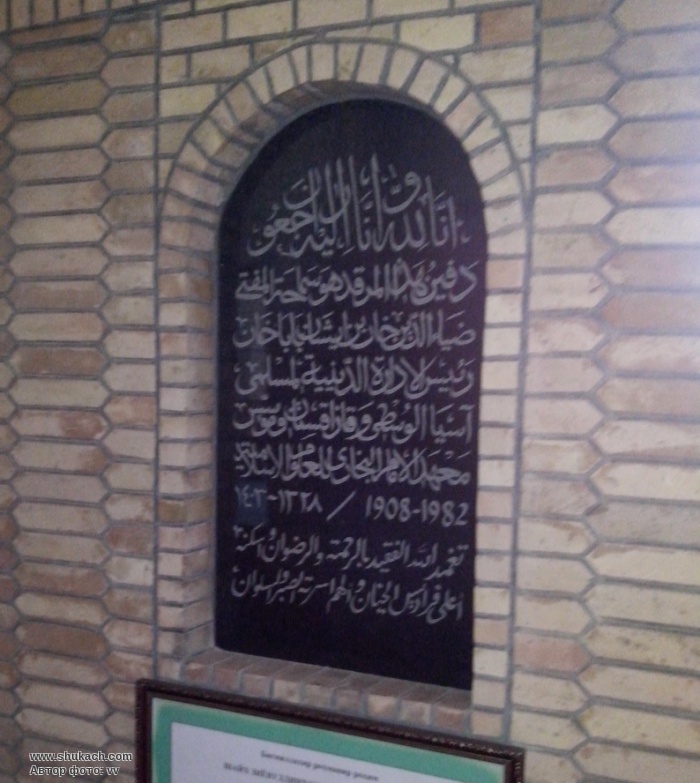 انا لله وانا اليه راجعون
دفين هذا المرقد هو سماحة المفتي
ضياء الدين خان بن ايشان باباخان
رئيس الادارة الدينية لمسلمي
آسيا الوسطى وقازاقستان ومؤسس
معهد الامام البخاري للعلوم الاسلامية
١٣٢٨-١٤٣ / 1908-1982
تغمد الله الفقيد بالرحمة والرضوان واسكنه
اعلى فراديس الجنان والهم اسرته الصبر والسلوان
www.shukach.com
Автор фото: vv